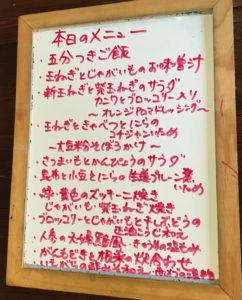 本日のメニュー
・五分つきご飯
・玉ねぎとじゃがいものお味噌汁
・新玉ねぎと紫玉ねぎのサラダ
カニワとブロッコリー入り
～オレンジAOマドレッシング～
・玉ねぎときゃべつとにらの
コチジャンいため
～大豆粉そぼろかけ～
・さつまいもとかんぴょうのサラダ
・昆布と小豆とにらの 生姜プレーン
いため
・緑・黄色のズッキーニ焼き
じゃがいも・紫玉ねぎ焼き
・ブロッコリーとじゃがいもと干しぶどうの
・人参の きゅうりの塩もみ
・がんもどきと根菜の炊合わせ